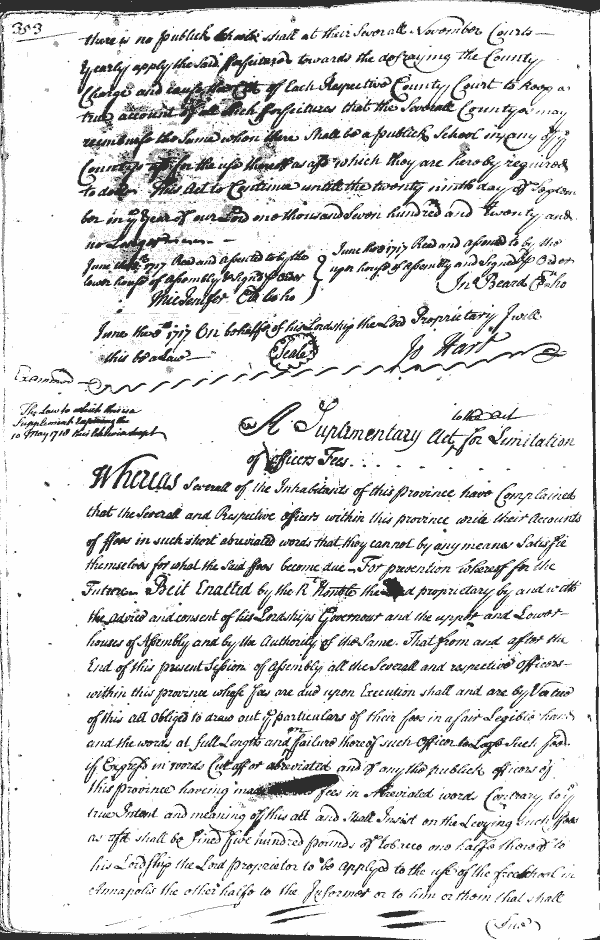 353
there is no publick Schools shall at their Severall November Courts
Yearly apply the Said forfeitures towards the defraying the County
Charge and cause the Clk of Each Respective County Court to keep a
true account of all Such forfeitures that the Severall Countys may
reimburse the Same when there Shall be a publick School in any of ye
Countys afd for the use thereof as afd which they are hereby required
to doe. This Act to Continue untill the twenty ninth day of Septem
ber in ye Year of our Lord one thousand Seven hundred and twenty and
no Longer
June 1717 Read and assented to by the
lower house of Assembly & Signd p Order
Mic Jenifer Clk lo ho
June the 8 1717 Read and assented to by the
upper house of Assembly and Signed p Order
Jn Beard Clk ho
June the 8th 1717 On behalfe of his Lordship the Lord Proprietary I will
this be a Law
Seale
Jo Hart
Examined
The Law to which this is a
Supplement Expiring the
10 May 1718 this likewise
to the act
A Suplimentary Act for Limitation
of officers Fees
Whereas Severall of the Inhabitants of this Province have Complained
that the Severall and Respective officers within this province write their Accounts
of ffees in such short abreviated words that they cannot by any means Satisfie
themselves for what the Said ffees become due For prevention whereof for the
Future Beit Enacted by the Rt Honble the Lord proprietary by and with
the advice and consent of his Lordships Governour and the upper and Lower
houses of Assembly and by the Authority of the Same That from and after the
End of this present Session of Assembly all the Severall and respective officers
within this province whose fees are due upon Execution shall and are by Vertue
of this act Obliged to draw out ye particulars of their fees in a fair Legible hand
and the words at full Length and on failure thereof such Officer to Lose Such fees
if Engrost in words Cutt off or abreviated and if any the publick officers of
this province having made fees in Abreviated words Contrary to ye
true Intent and meaning of this act and Shall Insist on the Levying Such ffees
as afd shall be fined five hundred pounds of tobacco one halfe thereof to
his Lordship the Lord proprietor to be applyed to the use of the free school in
Annapolis the other halfe to the Informer or to him or them that shall
Sue